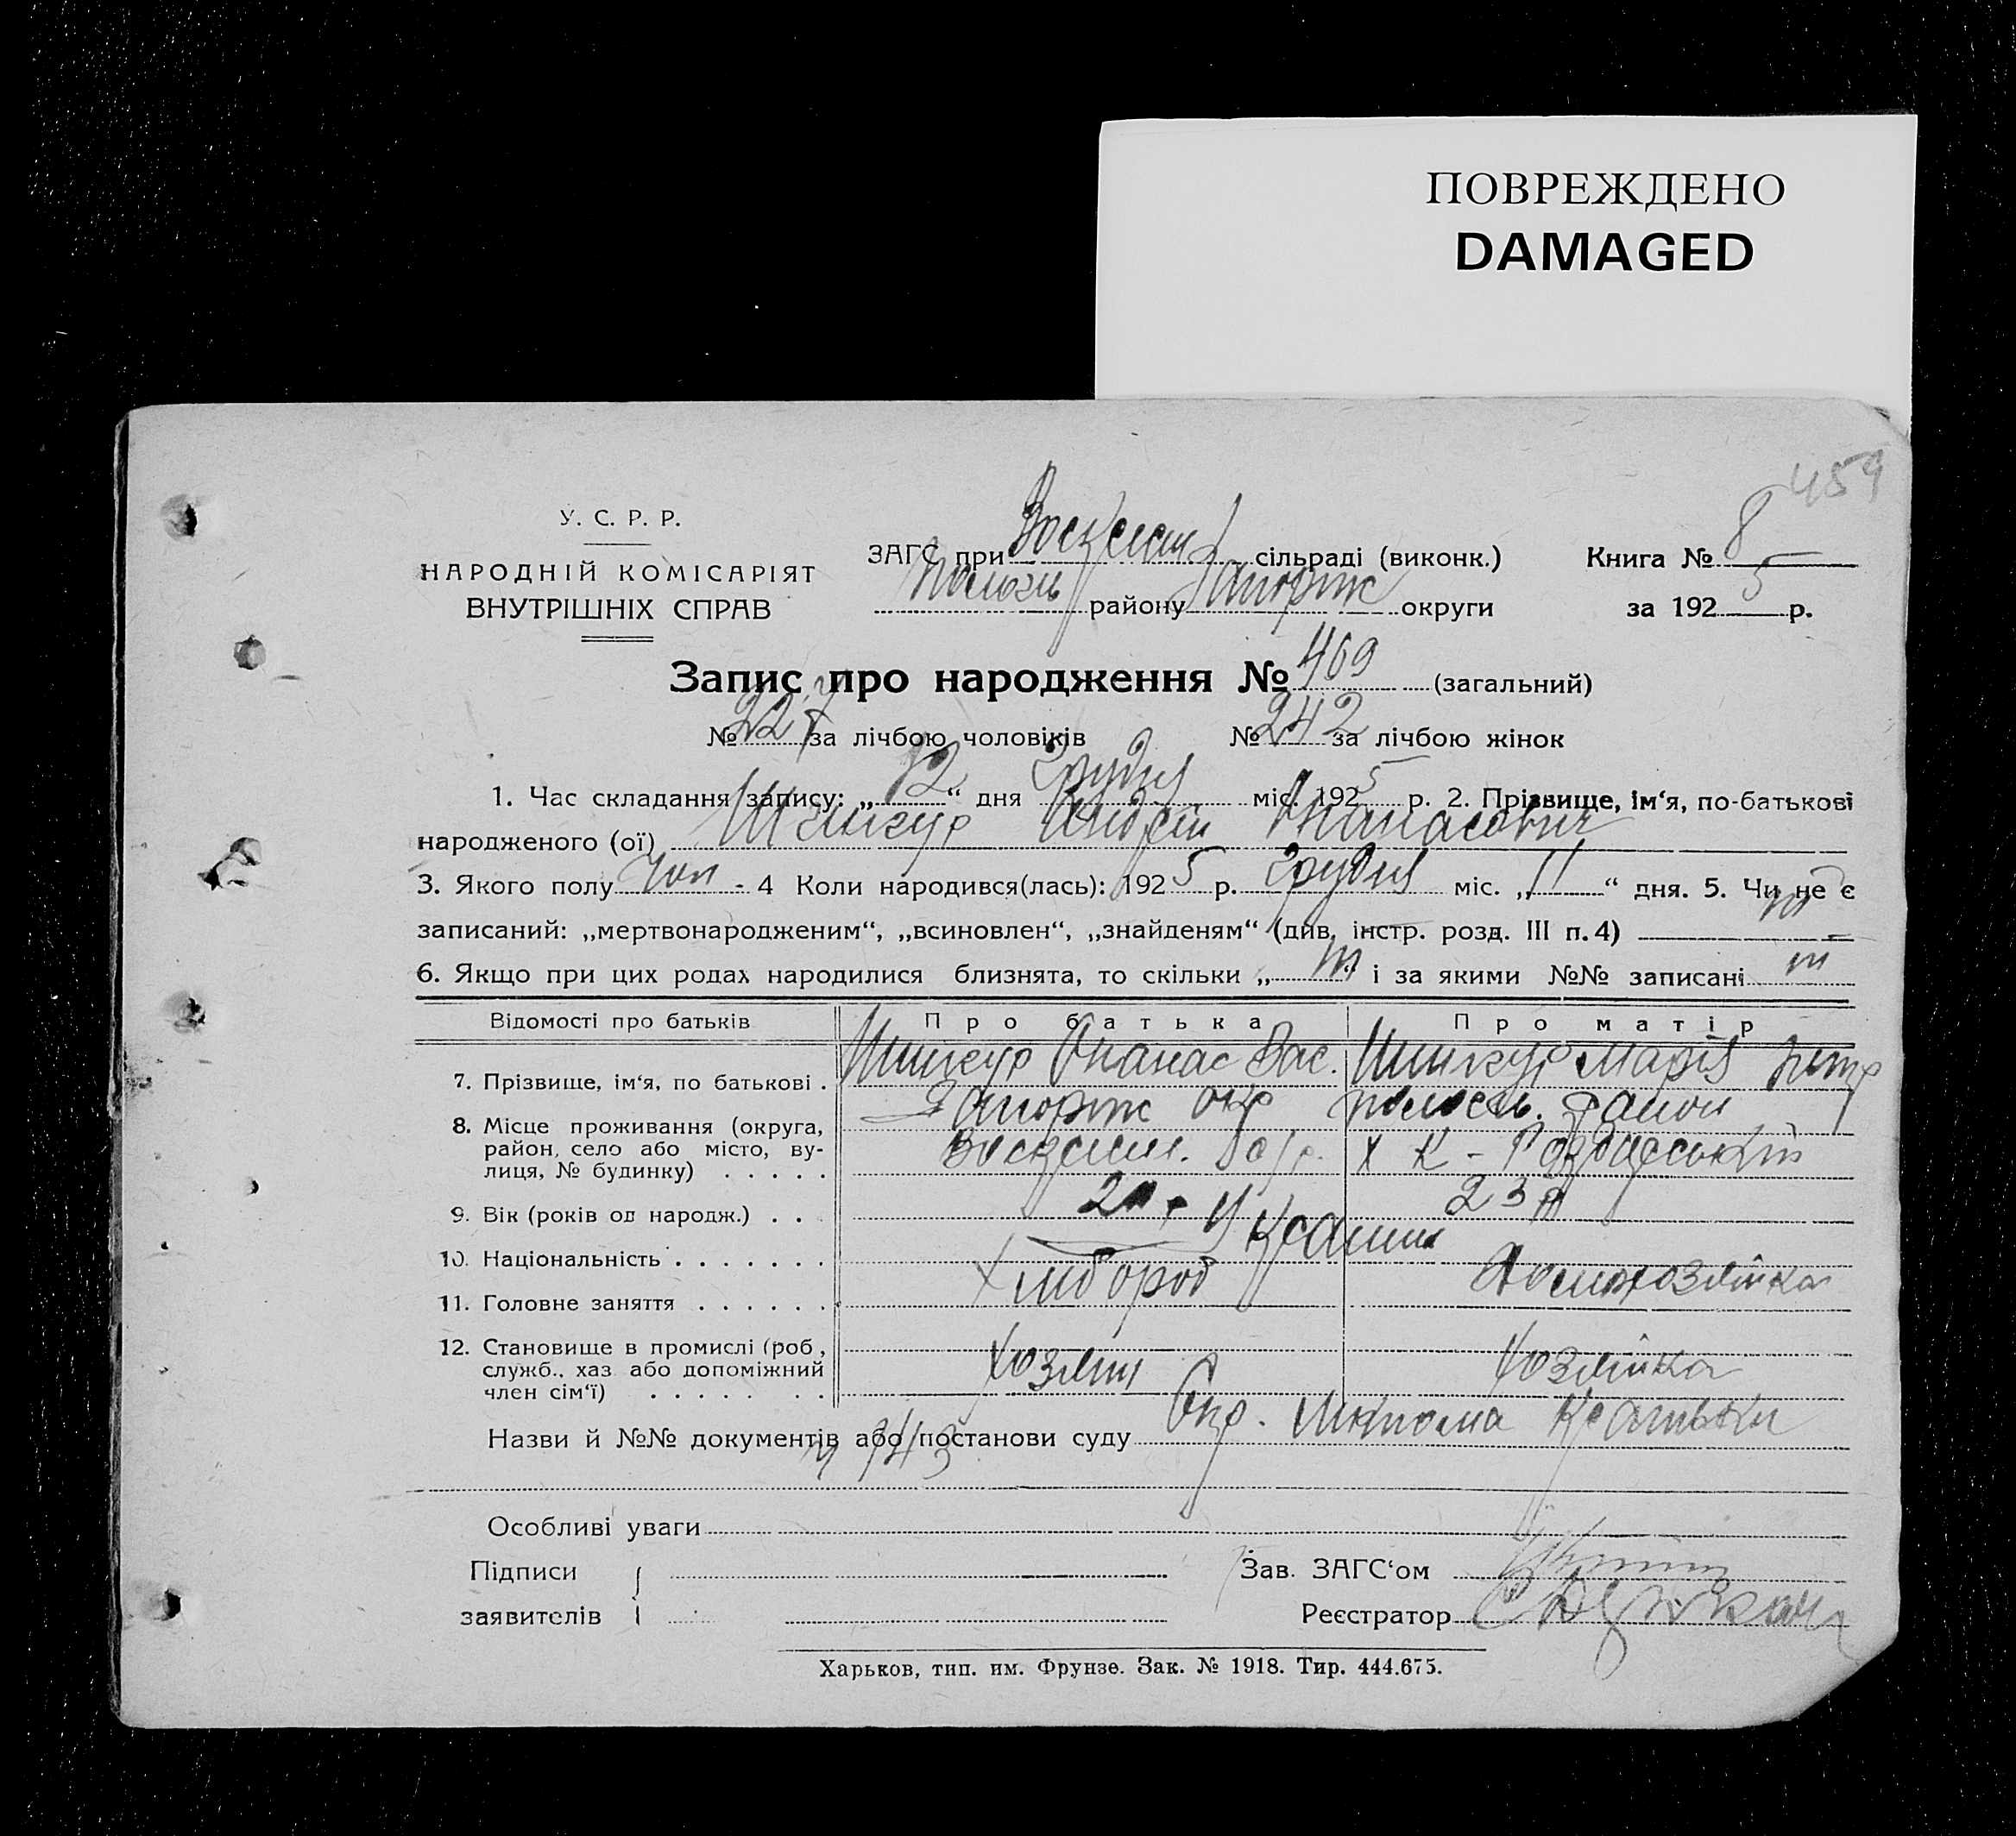 ПОВРЕЖДЕНО
DAMAGED
459
У. С. Р. Р.
НАРОДНІЙ КОМІСАРІЯТ
ВНУТРІШНІХ СПРАВ
ЗАГС при Воскресен сільраді (виконк.) Книга № 8
району Запориж округи за 1925 р.
Запис про народження № 469 (загальний)
№ 227 за лічбою чоловіків № 242 за лічбою жінок
1. Час складання запису: „12“ дня грудня міс. 1925 р. 2. Прізвище, ім‘я, по-батькові
народженого (ої) Шишкур Андрій Опанасович
3. Якого полу чол - 4 Коли народився(лась): 1925 р. грудня міс. „11“ дня. 5. Чи не є
записаний: „мертвонародженим“, „всиновлен“, „знайденям“ (див. інстр. розд. III п. 4)
6. Якщо при цих родах народилися близнята, то скільки „ і за якими №№ записані
Відомості про батьків Про батька Про матір
7. Прізвище, ім‘я, по батькові . Шишкур Опанас Вас. Шишкур Марія Петр
8. Місце проживання (округа, район, село або місто, ву-лиця, № будинку) . . . . . Запориж окр район
Воскресен. х К-
9. Вік (років од народж.) . . . 23 р
10. Національність . . . . . . . Україн
11. Головне заняття . . . . . . Хлібороб Домохозяйка
12. Становище в промислі (роб, служб., хаз або допоміжний член сім‘ї) . . . . . . . Хозяин Хозяйка
Назви й №№ документів або постанови суду
Особливі уваги
Підписи Зав. ЗАГС‘ом
заявителів Реєстратор
Харьков, тип. им. Фрунзе. Зак. № 1918. Тир. 444.675.